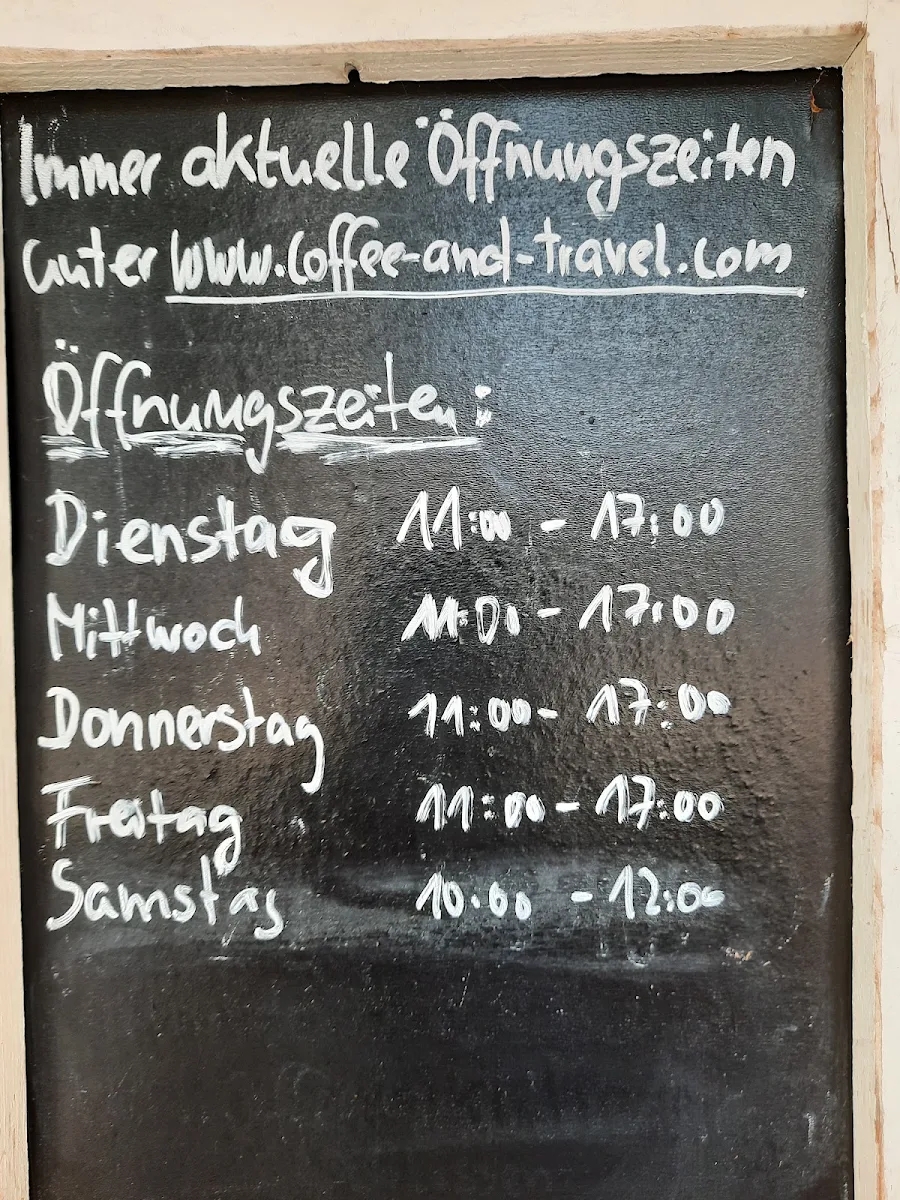 Immer aktuelle Öffnungszeiten
unter www.coffee-and-travel.com
Öffnungszeiten:
Dienstag 11:00 - 17:00
Mittwoch 11:00 - 17:00
Donnerstag 11:00 - 17:00
Freitag 11:00 - 17:00
Samstag 10:00 - 12:00